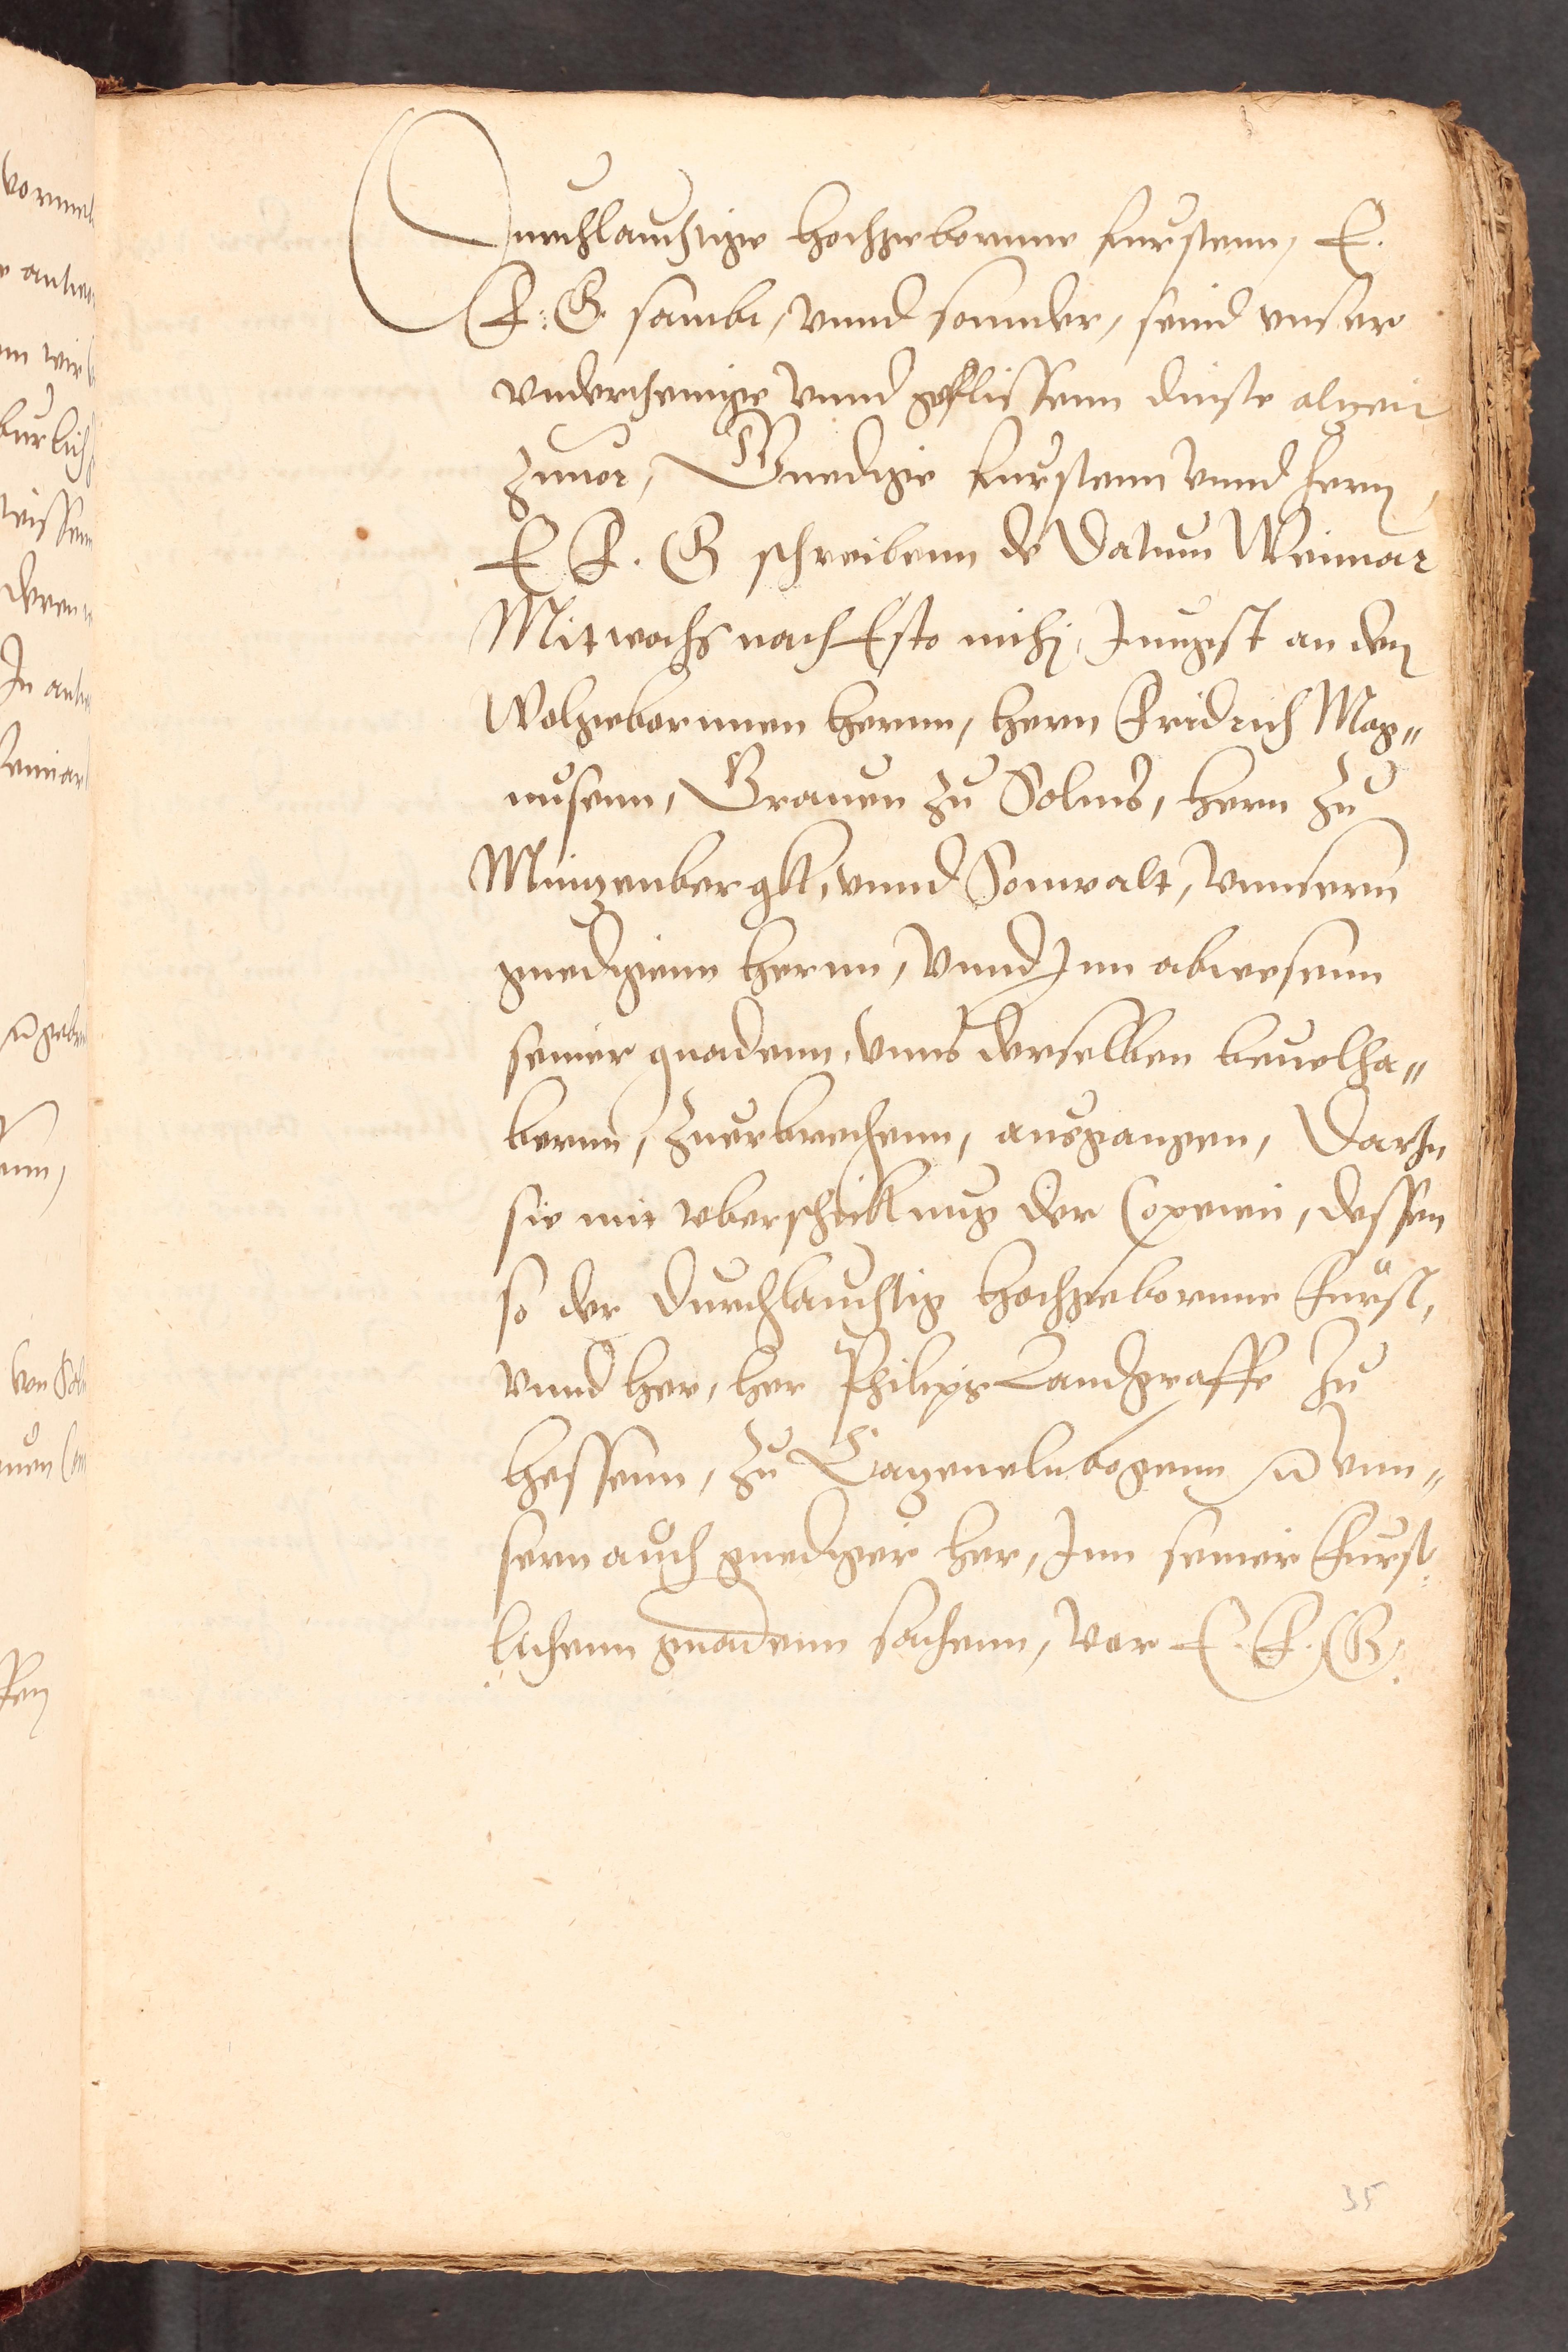 Durchlauchtige hochgebornne furstenn, E.
F. G. sambt, vnnd sonnder, seind vnser
vnderthenige vnnd geflissenn dinste alzeit
zuuor, Gnedige furstenn vnnd hern,
E F. G schreibenn de Datum Weimar
Mitwochs nach Esto mihi, Jungst an den
Wolgebornnen hernn, hern Fridrich Mag„
nusenn, Grauen zu Solms, hern zu
Mintzenbergk, vnnd Sonwalt, vnnserm
gnedigenn hernn, vnnd Jnn abwesenn
seiner gnadenn, vnns derselben beuelha„
bernn, zuerbrechenn, ausgangen, DarJn
sie mit vberschickung der Copeien, dessen
so der Durchlauchtig hochgebornne Furst,
vnnd her, her Philips Landgraffe zu
hessenn, zu Catzenelnbogenn
sern auch gnediger her, Jnn seiner Furst„
lichenn gnadenn sachenn, vor E. F. G.
35